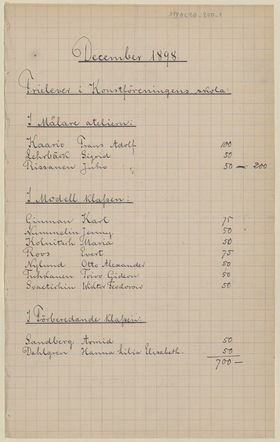 December 1898.
Frielever i Konstföreningens skola:
I Målare ateliern:
Kaario Frans Adolf 100
Lehrbäck Sigrid 50
Rissanen Juho 50 — 200
I Modell klassen:
Ginman Karl 75
Nummelin Jenny 50
Kolnitsch Maria 50
Roos Evert 75
Nylund Otto Alexander 50
Tuhkanen Toivo Gideon 50
Svaetichin Viktor Feodorow 50
I Förberedande klassen:
Sandberg Armid 50
Dahlgren Hanna Lilia Elisabeth. 50
700 —